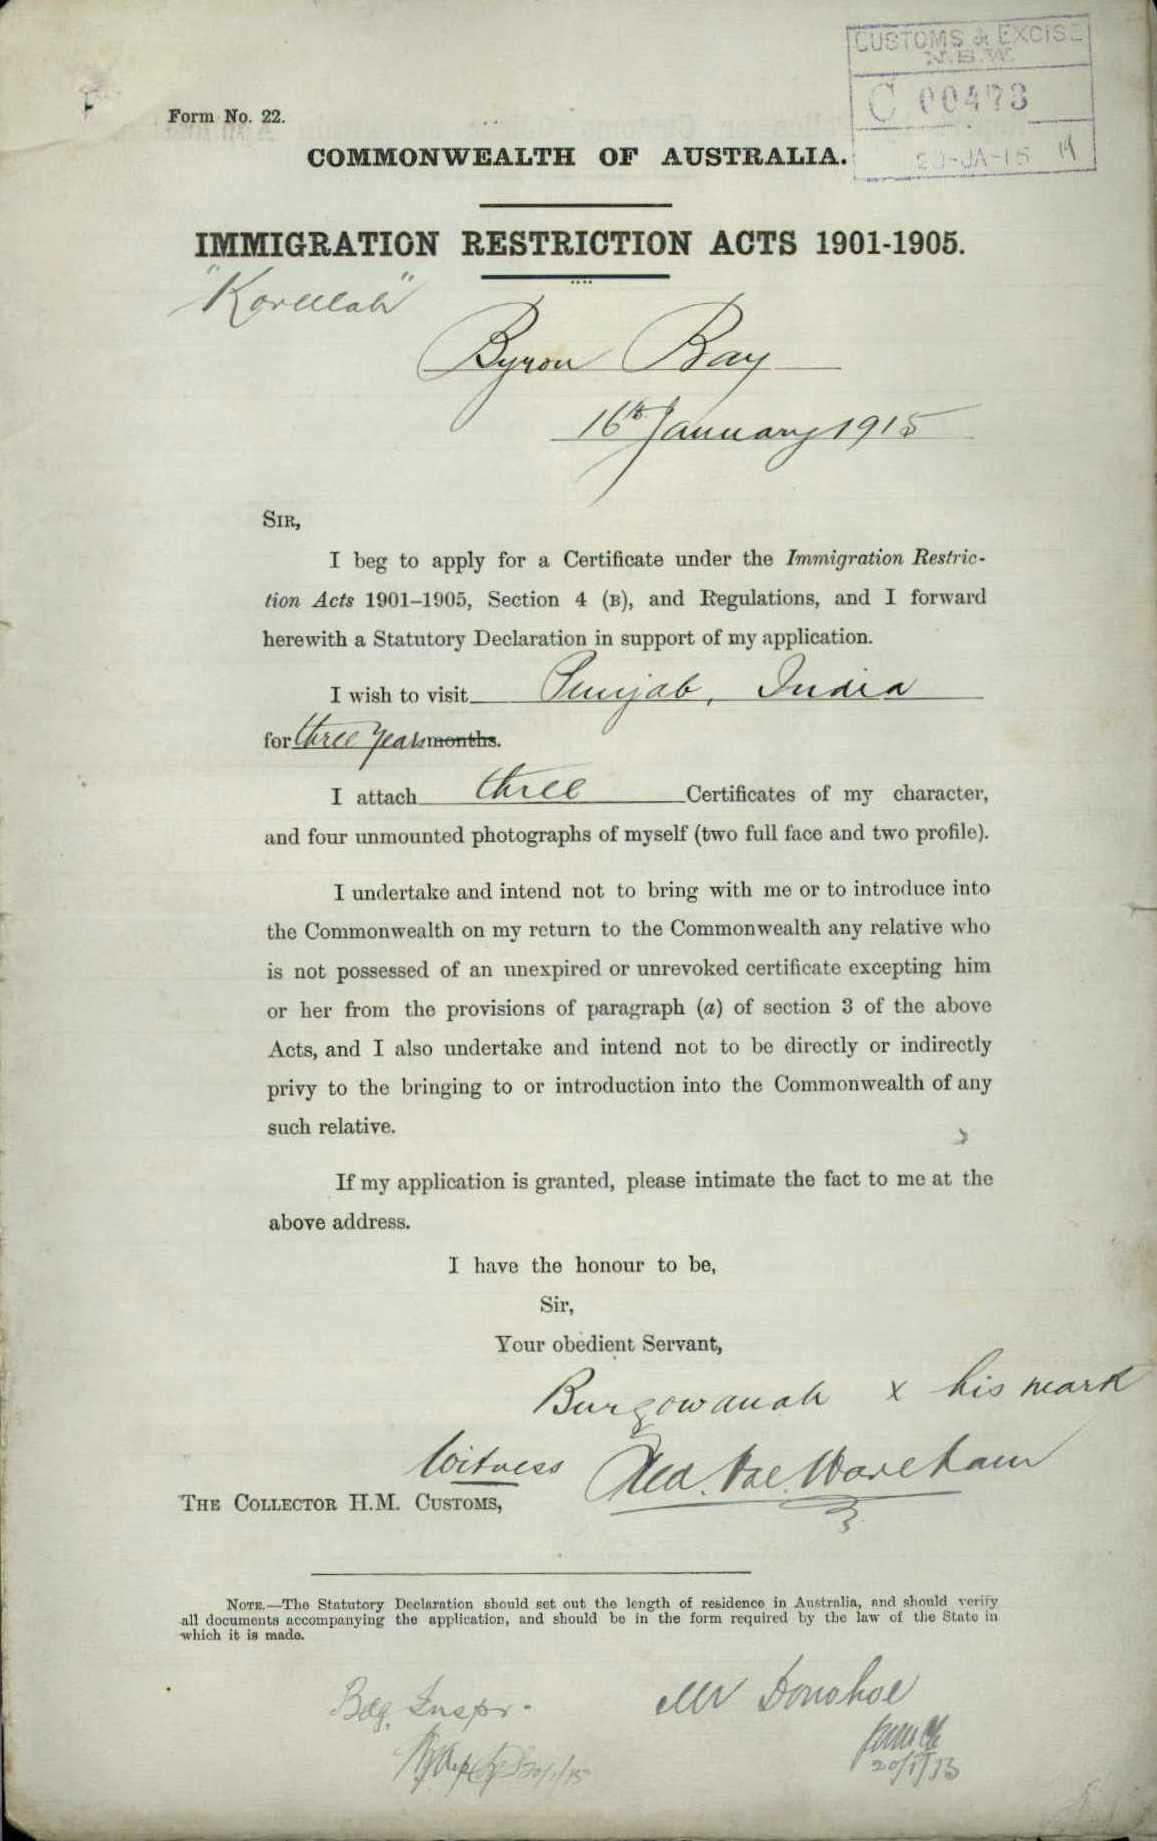 CUSTOMS & EXCISE
N.S.W.
C 00473
20-JA-15
Form No. 22.
COMMONWEALTH OF AUSTRALIA.
IMMIGRATION RESTRICTION ACTS 1901-1905.
Byron Bay
16th January 1915
SIR,
I beg to apply for a Certificate under the Immigration Restric-
tion Acts 1901–1905, Section 4 (B), and Regulations, and I forward
herewith a Statutory Declaration in support of my application.
I wish to visit Punjab, India
for three years months.
I attach three Certificates of my character,
and four unmounted photographs of myself (two full face and two profile).
I undertake and intend not to bring with me or to introduce into
the Commonwealth on my return to the Commonwealth any relative who
is not possessed of an unexpired or unrevoked certificate excepting him
or her from the provisions of paragraph (a) of section 3 of the above
Acts, and I also undertake and intend not to be directly or indirectly
privy to the bringing to or introduction into the Commonwealth of any
such relative.
If my application is granted, please intimate the fact to me at the
above address.
I have the honour to be,
Sir,
Your obedient Servant,
Burgowanah x his mark
Witness Wareham
THE COLLECTOR H.M. CUSTOMS,
NOTE.—The Statutory Declaration should set out the length of residence in Australia, and should verify
all documents accompanying the application, and should be in the form required by the law of the State in
which it is made.
Bdg. Inspr. Mr Donohoe
20/1/15